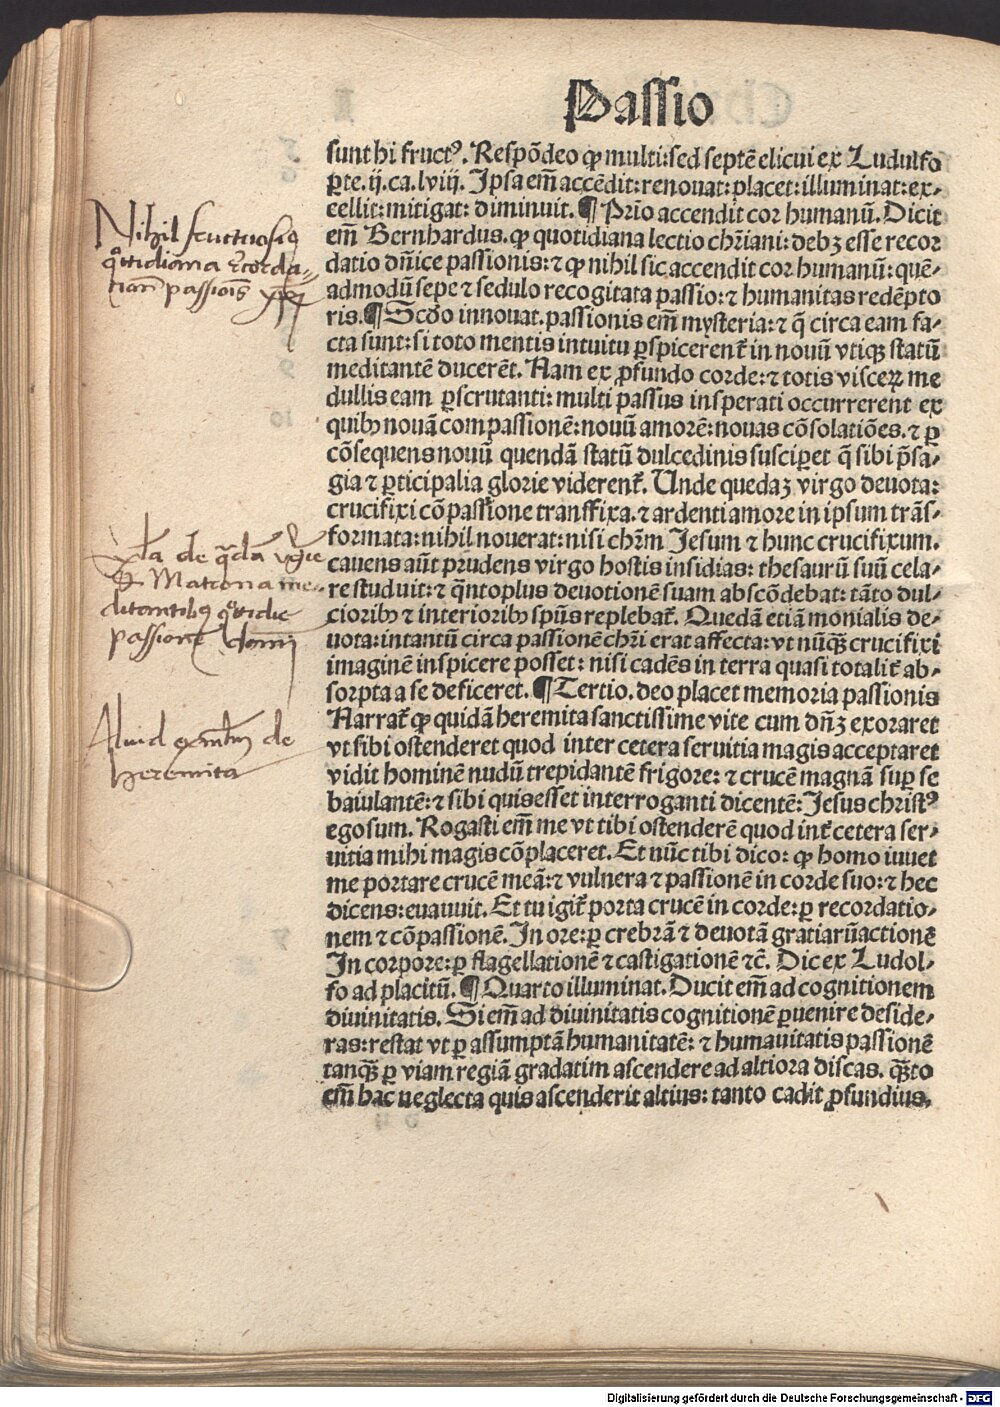 Passio
sunt hi fructꝰ. Respōdeo ꝙ multi: sed septē elicui ex Ludulfo
ꝑte. ij. ca. lviij. Ipsa em̄ accēdit: renouat: placet: illuminat: ex-
cellit: mitigat: diminuit. ¶ Prīo accendit cor humanū. Dicit
em̄ Bernhardus. ꝙ quotidiana lectio chr̄iani: debꝫ esse recor
datio dn̄ice passionis: ⁊ ꝙ nihil sic accendit cor humanū: quē-
admodū sepe ⁊ sedulo recogitata passio: ⁊ humanitas redēpto
ris. ¶ Scd̄o innouat. passionis em̄ mysteria: ⁊ q̄ circa eam fa-
cta sunt: si toto mentis intuitu ꝑspicerent̄ in nouū vtiqꝫ statū
meditantē ducerēt. Nam ex ꝓfundo corde: ⁊ totis visceꝝ me
dullis eam ꝑscrutanti: multi passus insperati occurrerent ex
quibꝰ nouā compassionē: nouū amorē: nouas cōsolatiōes. ⁊ ꝑ
cōsequens nouū quendā statū dulcedinis susciꝑet q̄ sibi p̄sa-
gia ⁊ ꝑticipalia glorie viderent̄. Unde quedaꝫ virgo deuota:
crucifixi cōpassione transfixa. ⁊ ardenti amore in ipsum trās-
formata: nihil nouerat: nisi chr̄m Jesum ⁊ hunc crucifixum.
cauens aūt prudens virgo hostis insidias: thesaurū suū cela-
re studuit: ⁊ qn̄to plus deuotionē suam abscōdebat: tāto dul-
cioribꝰ ⁊ interioribꝰ spūs replebat̄. Quedā etiā monialis de-
uota: intantū circa passionē chr̄i erat affecta: vt nūqꝫ crucifixi
imaginē inspicere posset: nisi cadēs in terra quasi totalit̄ ab-
sorpta a se deficeret. ¶ Tertio. deo placet memoria passionis
Narrat̄ ꝙ quidā heremita sanctissime vite cum dn̄ꝫ exoraret
vt sibi ostenderet quod inter cetera seruitia magis acceptaret
vidit hominē nudū trepidantē frigore: ⁊ crucē magnā suꝑ se
baiulantē: ⁊ sibi quis esset interroganti dicentē: Jesus christꝰ
ego sum. Rogasti em̄ me vt tibi ostenderē quod int̄ cetera ser-
uitia mihi magis cōplaceret. Et nūc tibi dico: ꝙ homo iuuet
me portare crucē meā: ⁊ vulnera ⁊ passionē in corde suo: ⁊ hec
dicens: euanuit. Et tu igit̄ porta crucē in corde: ꝑ recordatio-
nem ⁊ cōpassionē. In ore: ꝑ crebrā ⁊ deuotā gratiarū actionē
In corpore: ꝑ flagellationē ⁊ castigationē ⁊c̄. Dic ex Ludol-
fo ad placitū. ¶ Quarto illuminat. Ducit em̄ ad cognitionem
diuinitatis. Si em̄ ad diuinitatis cognitionē ꝑuenire deside-
ras: restat vt ꝑ assumptā humanitatē: ⁊ humanitatis passionē
tanqꝫ ꝑ viam regiā gradatim ascendere ad altiora discas. qꝫto
em̄ hac neglecta quis ascenderit altius: tanto cadit ꝓfundius.
Nihil fructuosiꝰ
passiōis
de q̄dā
Matrona me-
ditantibꝰ
passionē domi
Aliud de
heremita
Digitalisierung gefördert durch die Deutsche Forschungsgemeinschaft - DFG